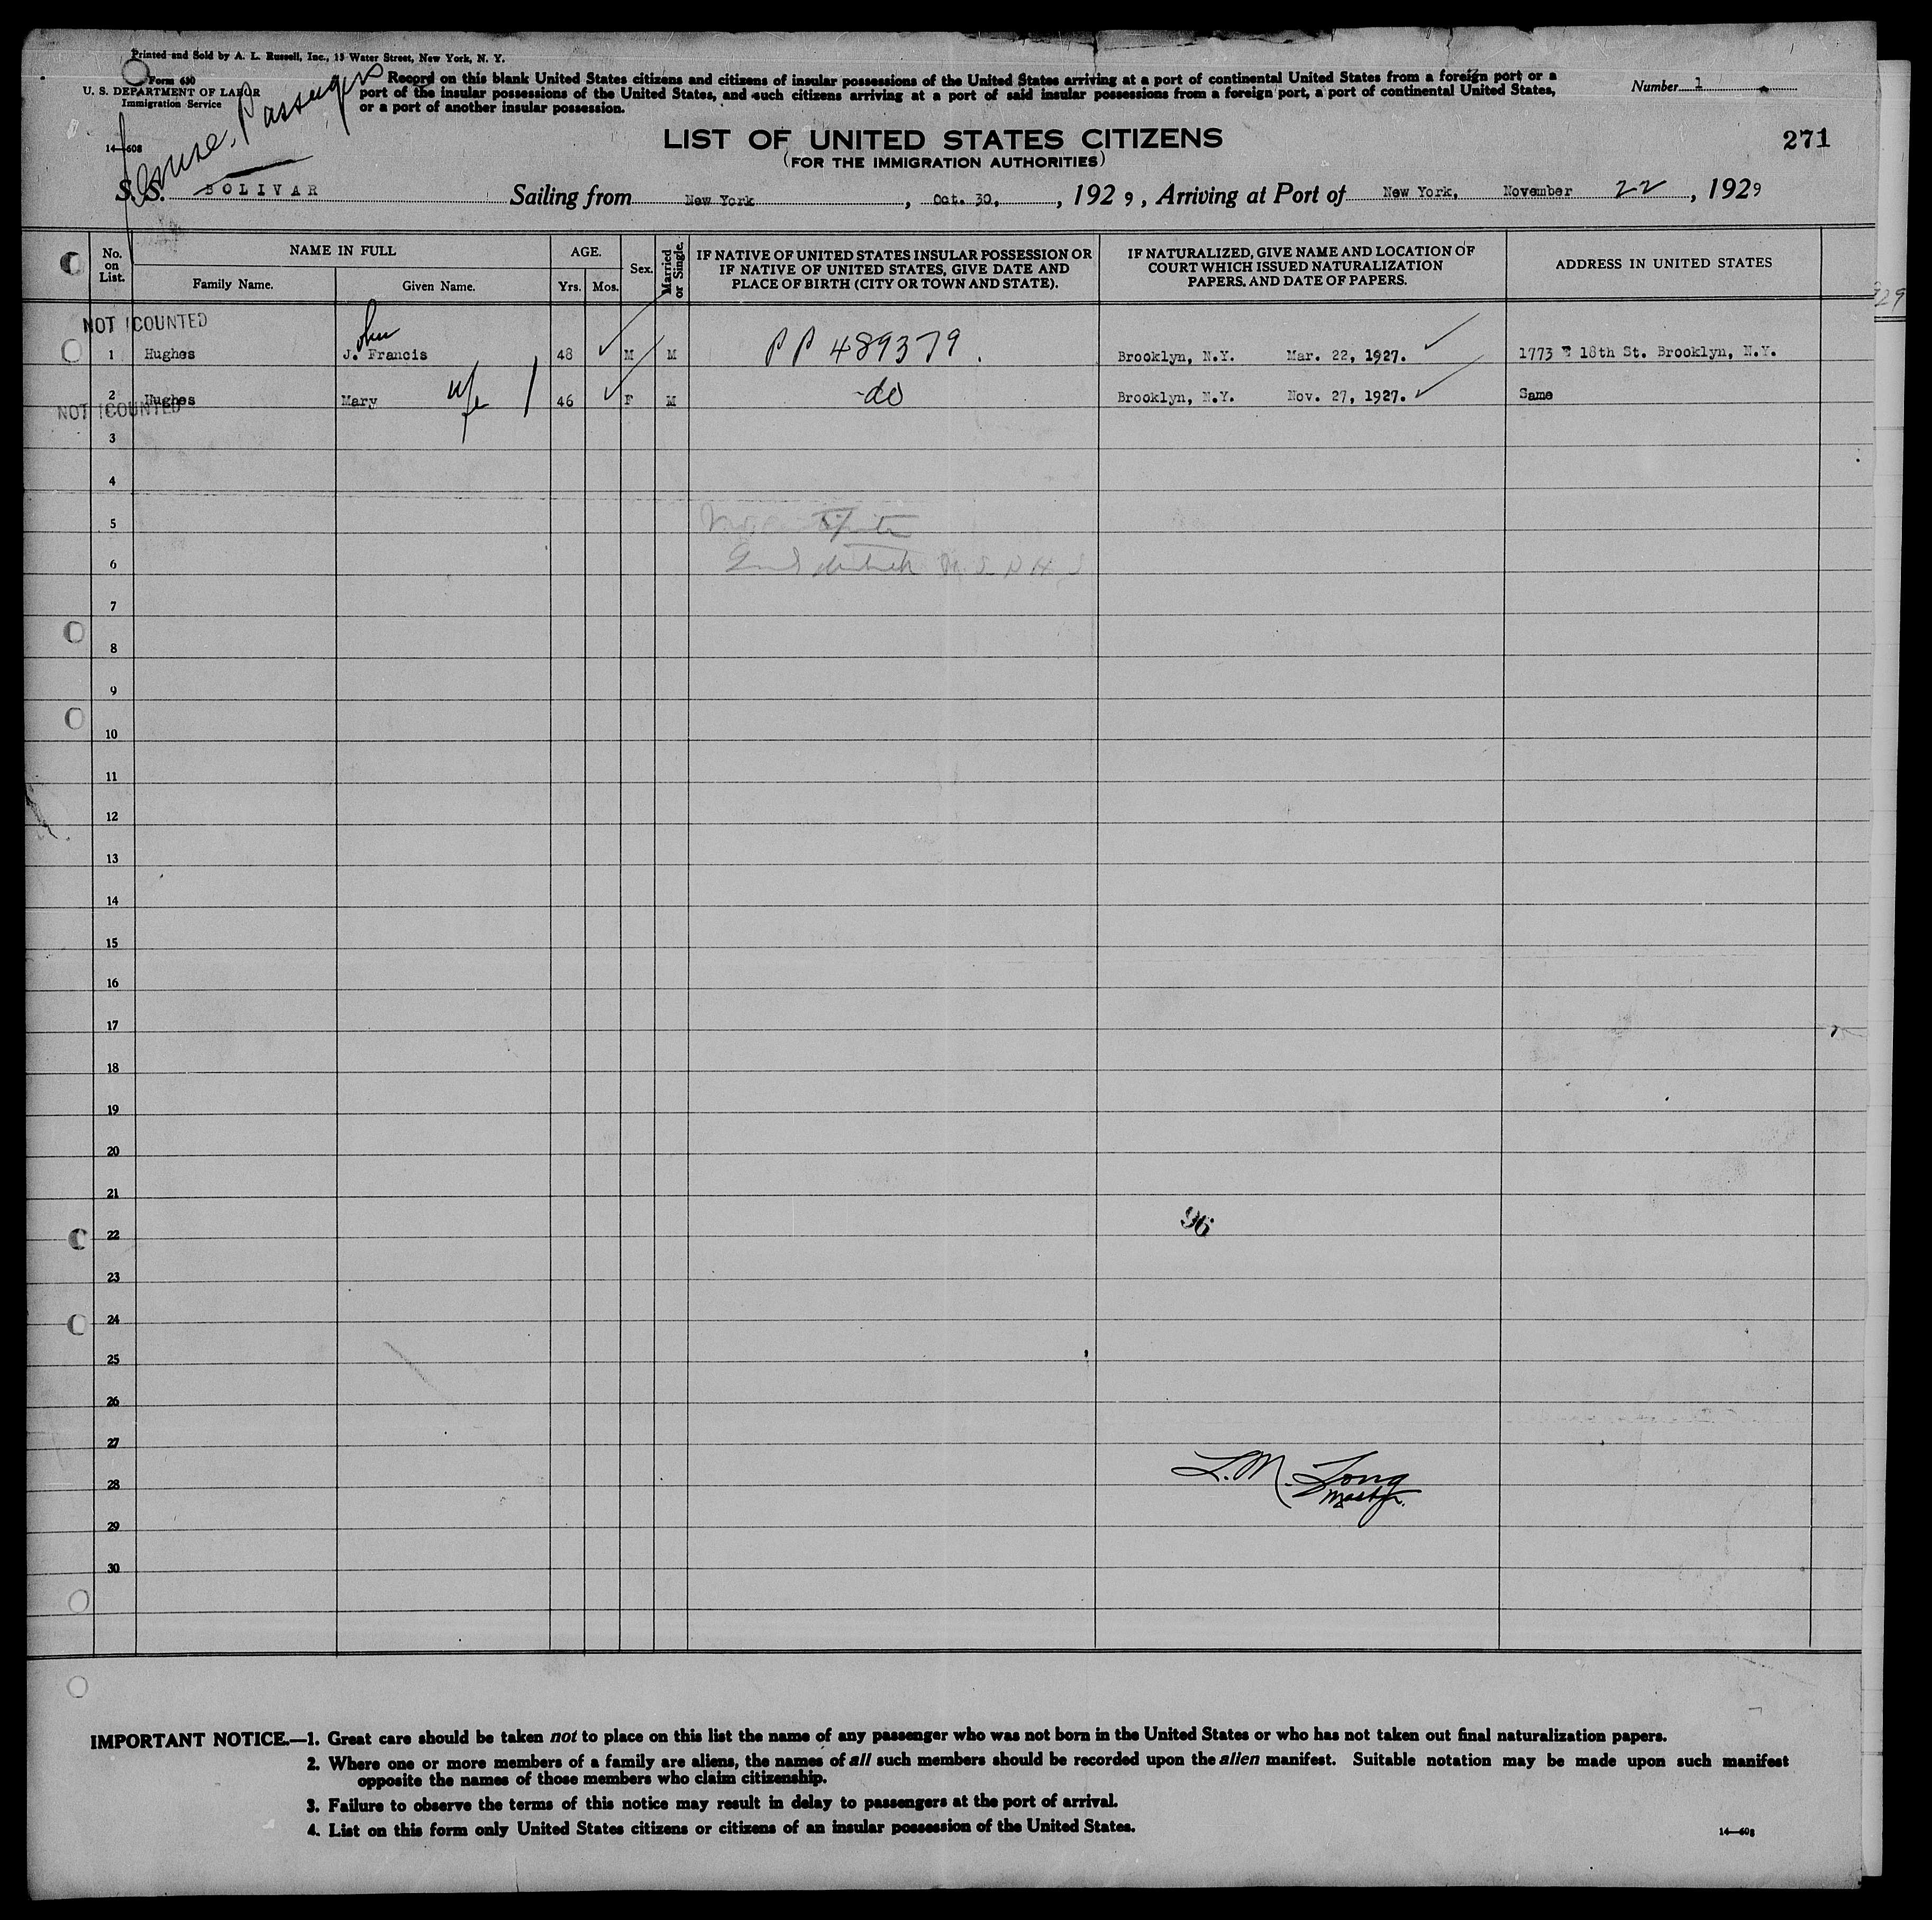 Printed and Sold by A. L. Russell, Inc., 15 Water Street, New York, N. Y.
Form 630
U. S. DEPARTMENT OF LABOR
Immigration Service
14—608
Passengers
Record on this blank United States citizens and citizens of insular possessions of the United States arriving at a port of continental United States from a foreign port or a
port of the insular possessions of the United States, and such citizens arriving at a port of said insular possessions from a foreign port, a port of continental United States,
or a port of another insular possession.
Number 1
LIST OF UNITED STATES CITIZENS
(FOR THE IMMIGRATION AUTHORITIES)
271
S. S. BOLIVAR Sailing from New York, Oct. 30, 1929, Arriving at Port of New York, November 22, 1929
No. on List.
NAME IN FULL
Family Name.
Given Name.
AGE.
Yrs. Mos.
Sex.
Married or Single.
IF NATIVE OF UNITED STATES INSULAR POSSESSION OR
IF NATIVE OF UNITED STATES, GIVE DATE AND
PLACE OF BIRTH (CITY OR TOWN AND STATE).
IF NATURALIZED, GIVE NAME AND LOCATION OF
COURT WHICH ISSUED NATURALIZATION
PAPERS, AND DATE OF PAPERS.
ADDRESS IN UNITED STATES
929
NOT COUNTED
John
1 Hughes J. Francis 48 M M PP 489379. Brooklyn, N.Y. Mar. 22, 1927. 1773 E 18th St. Brooklyn, N.Y.
2 Hughes Mary wife 46 F M -do Brooklyn, N.Y. Nov. 27, 1927. Same
NOT COUNTED
3
4
5
6
7
8
9
10
11
12
13
14
15
16
17
18
19
20
21
96
22
23
24
25
26
27
L. M. Long
28
Master.
29
30
IMPORTANT NOTICE.—1. Great care should be taken not to place on this list the name of any passenger who was not born in the United States or who has not taken out final naturalization papers.
2. Where one or more members of a family are aliens, the names of all such members should be recorded upon the alien manifest. Suitable notation may be made upon such manifest
opposite the names of those members who claim citizenship.
3. Failure to observe the terms of this notice may result in delay to passengers at the port of arrival.
4. List on this form only United States citizens or citizens of an insular possession of the United States.
14—608